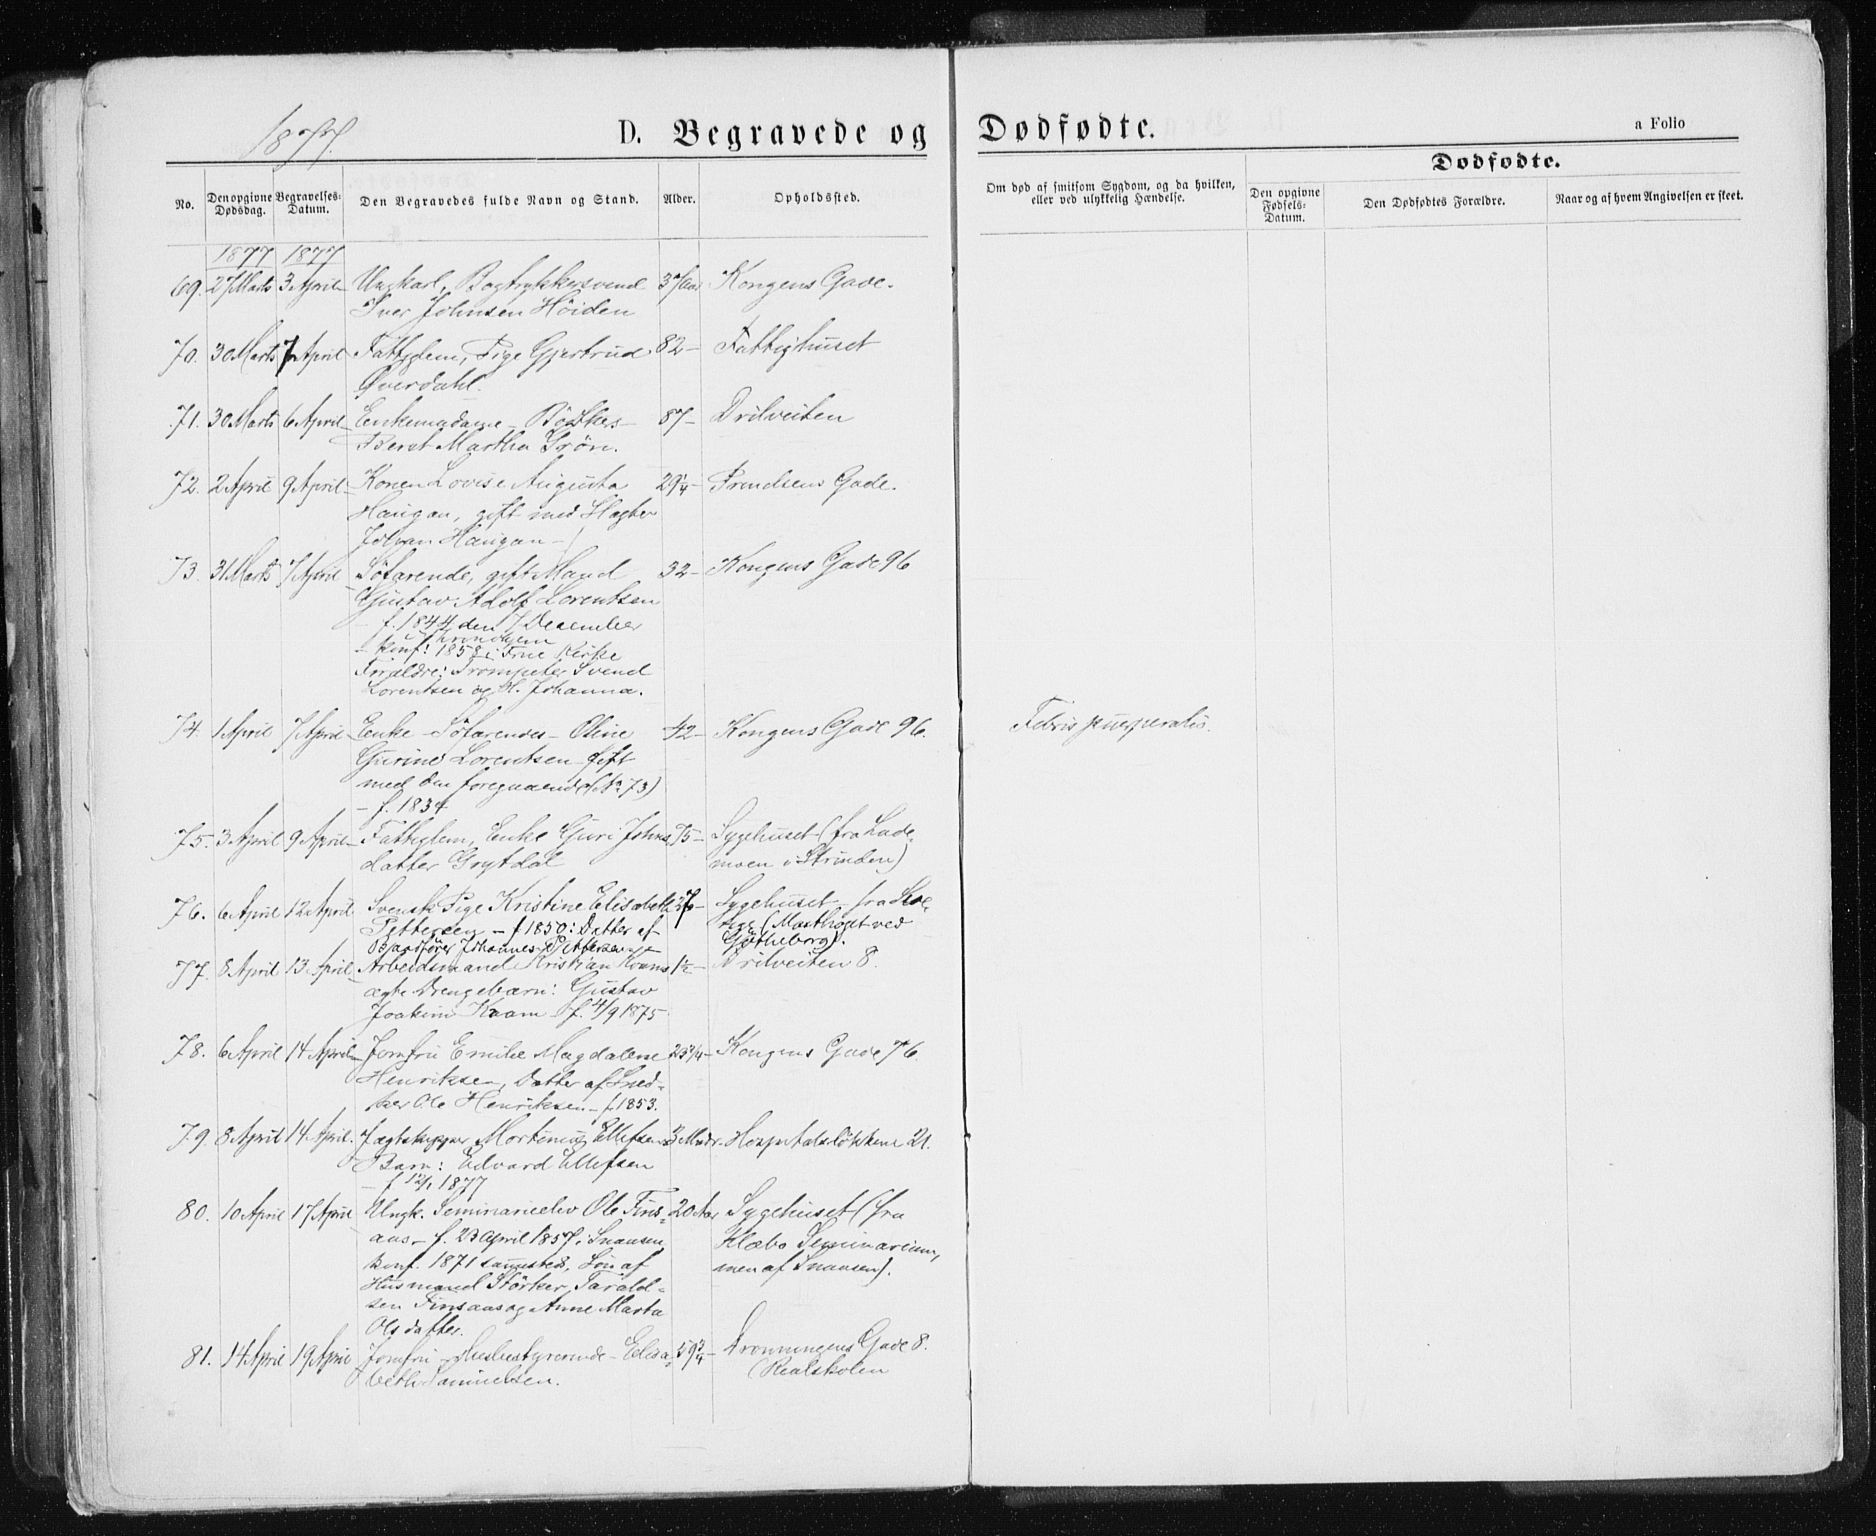 1877.
D. Begravede og Dødfødte.
a Folio
No.
Den opgivne Dødsdag.
Begravelses-Datum.
Den Begravedes fulde Navn og Stand.
Alder.
Opholdssted.
Om død af smitsom Sygdom, og da hvilken, eller ved ulykkelig Hændelse.
Dødfødte.
Den opgivne Fødsels-Datum.
Den Dødfødtes Forældre.
Naar og af hvem Angivelsen er skeet.
1877 1877
69. 27 Marts 3 April Ungkarl, Bogtrykkersvend 37 Aar Kongens Gade.
Iver Johnsen Höiden
70. 30 Marts 7 April Fattiglem, Pige Gjertrud 82 - Fattighuset
Øverdahl.
71. 30 Marts 6 April Enkemadame - Bødkers - 87 - Drilveiten
Beret Martha Grön.
72. 2 April 9 April Konen Lovise Augusta 29 1/4 - Prindsens Gade.
Haugan, gift med Slagter
Johan Haugan -
73. 31 Marts 7 April Söfarende, gift Mand 32 - Kongens Gade 96
Gustav Adolf Lorentsen
- f. 1844 den 7 December
Trondhjem
- konf. 1858 i Frue Kirke
Forældre: Trompeter Svend
Lorentsen og H. Johanna.
74. 1 April 7 April Enke - Söfarendes - Oline 42 - Kongens Gade 96. Febris puerperalis.
Gurine Lorentsen - gift
med den foregaaende (No 73)
- f. 1834
75. 3 April 9 April Fattiglem, Enke Guri Johns 75 - Sygehuset (fra Lade-
datter Grytdal moen i Strinden)
76. 6 April 12 April Svensk Pige Kristine Elisabeth 27 - Sygehuset - fra
Pettersen - f. 1850: Datter af (Masthugt ved
Johannes Pettersen - Götheborg).
77. 8 April 13 April Arbeidsmand Kristian Kvams 1 1/2 - Drilveiten 8.
ægte Drengebarn: Gustav
Joakim Kvam - f. 4/9 1875
78. 6 April 14 April Jomfru Emilie Magdalene 23 3/4 - Kongens Gade 76.
Henriksen, Datter af Sned-
ker Ole Henriksen - f. 1853.
79. 8 April 14 April. Jægtskipper Mortinus Ellefsens 3 Mndr - Hospitalslökkene 21.
Barn: Edvard Ellefsen
- f. 12/1 1877
80. 10 April 17 April Ungk. Seminarieelev Ole Fins- 20 Aar Sygehuset (fra
aas - f. 23 April 1857 i Snaasen Klæbo Seminarium,
konf. 1871 sammesteds, Sön af men af Snaasen).
Husmand Störker Tarald-
sen Finsaas og Anne Marta
Olsdatter.
81. 14 April 19 April Jomfru - Husbestyrerinde - Elisa- 59 3/4 - Dronningens Gade 8.
beth Samuelsen. (Realskolen